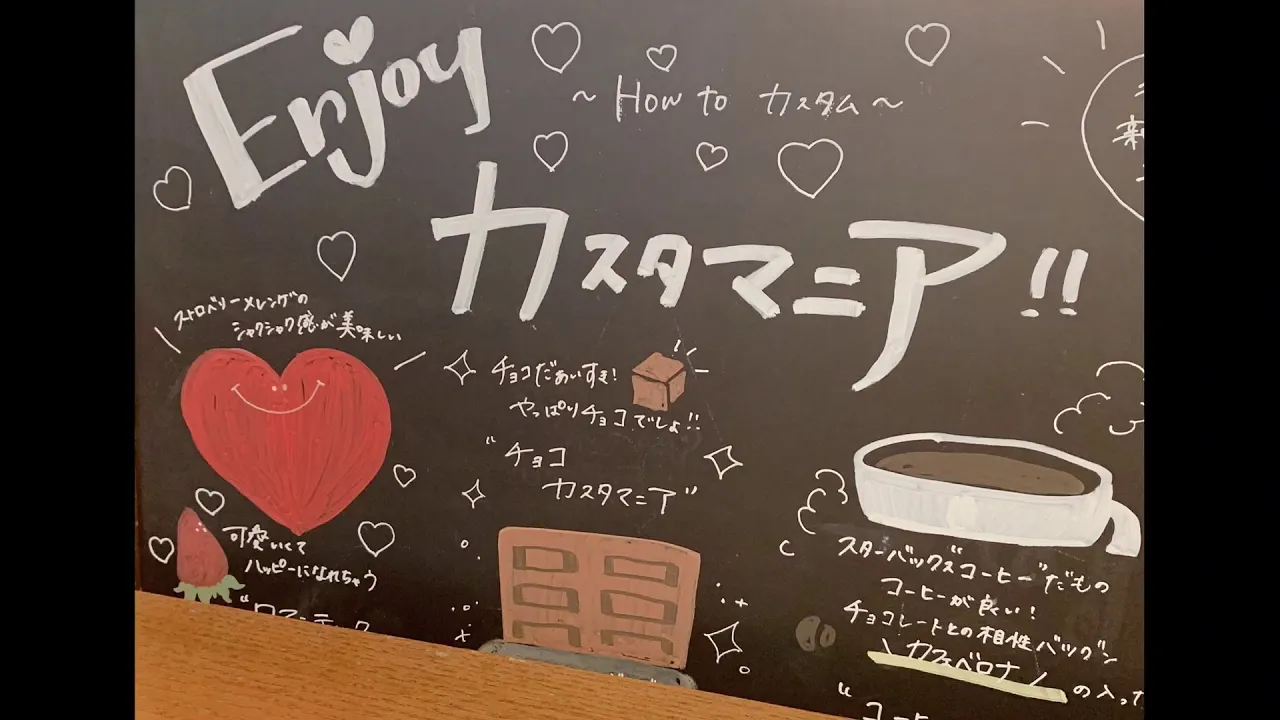 Enjoy
~ How to カスタム ~
カスタマニア!!
新
ストロベリーメレンゲの
シャクシャク感が美味しい
可愛いくて
ハッピーになれちゃう
"ロマンティック
チョコだぁいすき!
やっぱりチョコでしょ!!
"チョコ
カスタマニア"
スターバックス"コーヒー"だもの
コーヒーが良い!
チョコレートとの相性バツグン
\カフェベロナ/
の入った
"コーヒ